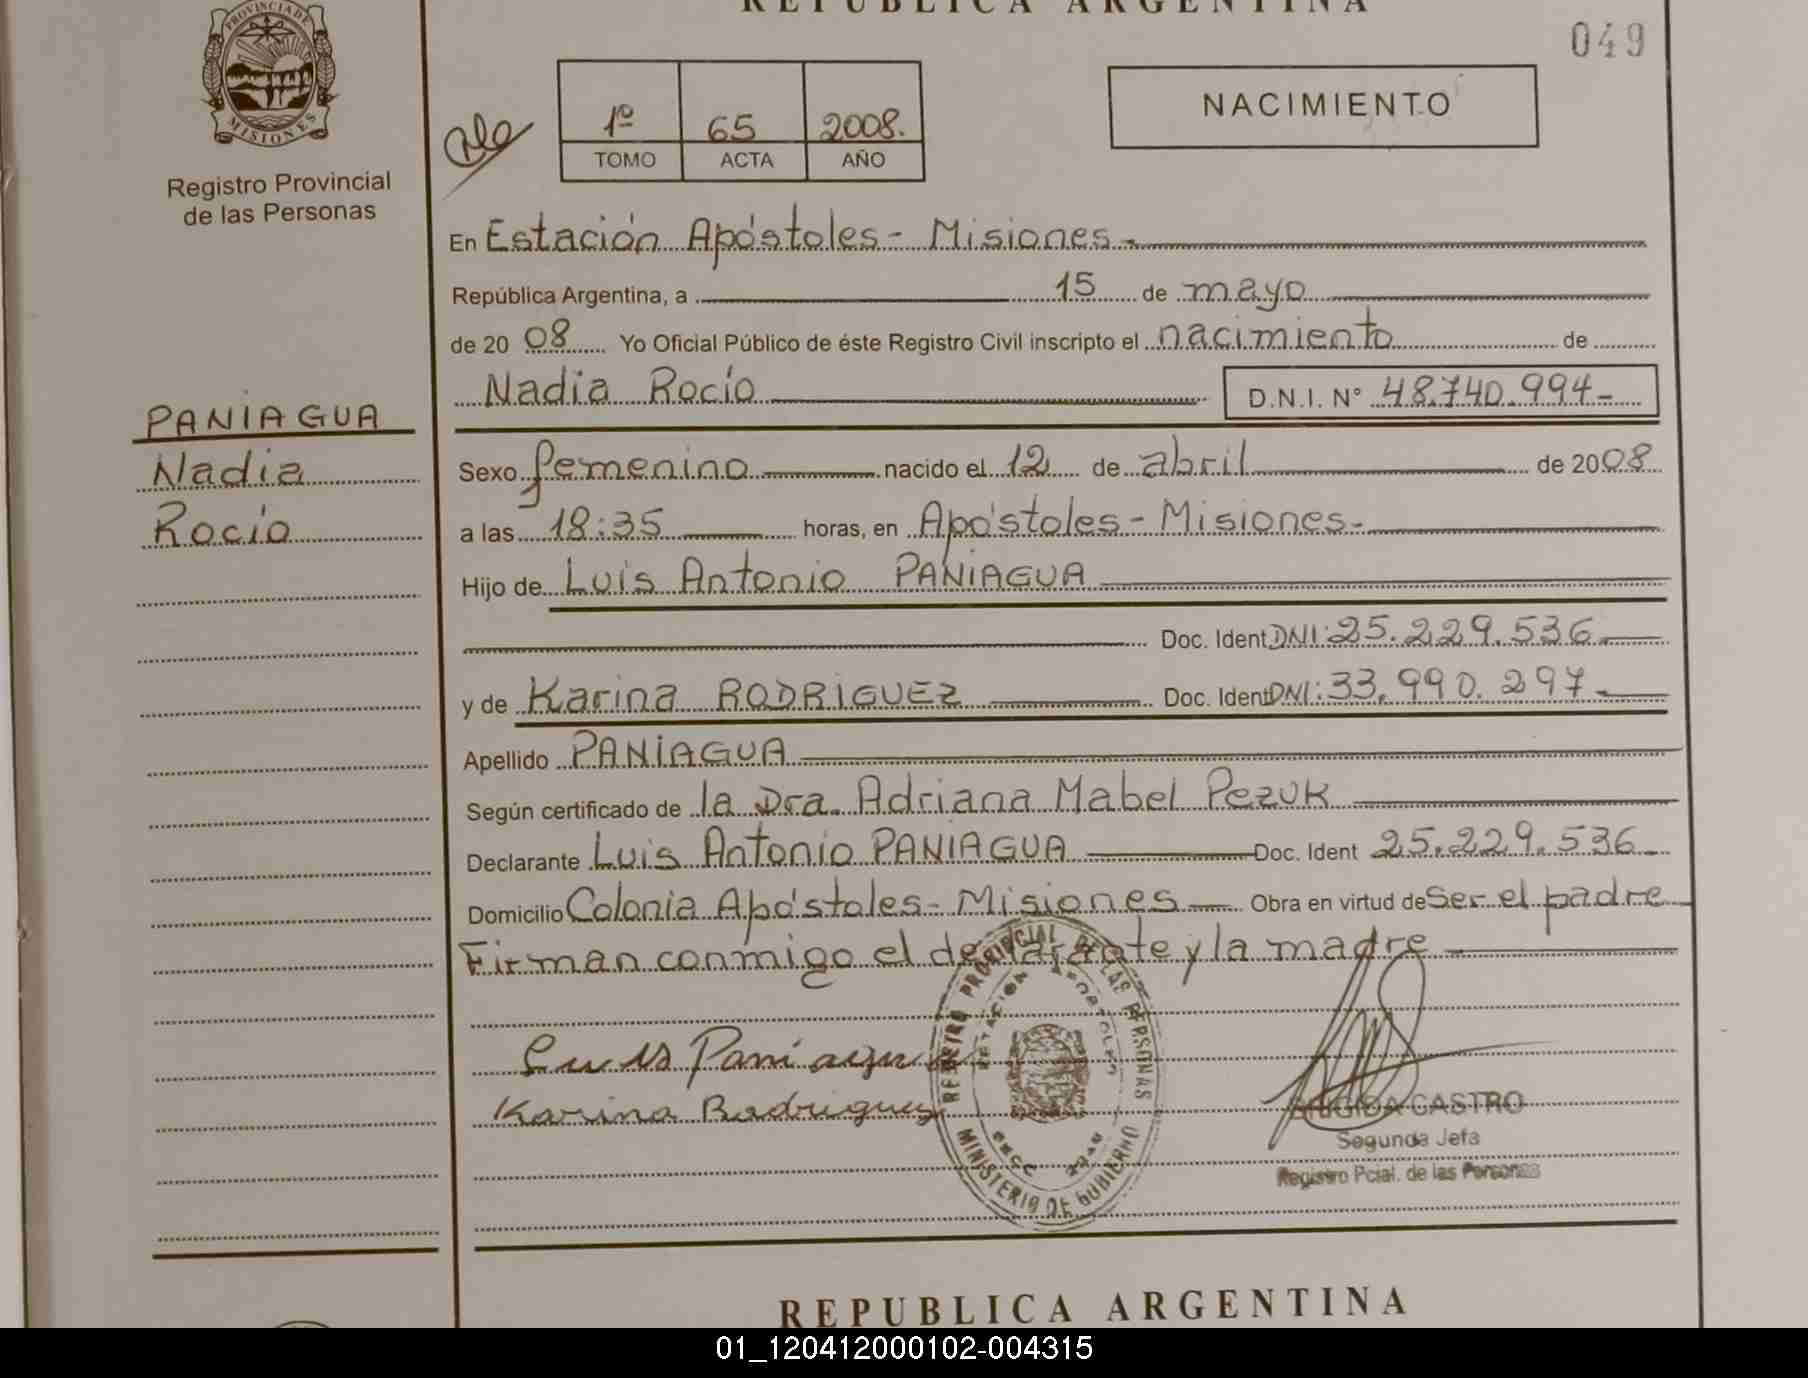 REPUBLICA ARGENTINA
049
PROVINCIA DE
MISIONES
Registro Provincial
de las Personas
1º 65 2008.
TOMO ACTA AÑO
NACIMIENTO
En Estación Apóstoles - Misiones -
República Argentina, a 15 de mayo
de 2008 Yo Oficial Público de éste Registro Civil inscripto el nacimiento de
Nadia Rocío D.N.I. N° 48.740.994-
PANIAGUA
Nadia
Rocío
Sexo femenino nacido el 12 de abril de 2008
a las 18:35 horas, en Apóstoles - Misiones -
Hijo de Luis Antonio PANIAGUA
Doc. Ident DNI: 25.229.536
y de Karina RODRIGUEZ Doc. Ident DNI: 33.990.297
Apellido PANIAGUA
Según certificado de la Dra. Adriana Mabel Pezuk
Declarante Luis Antonio PANIAGUA Doc. Ident 25.229.536
Domicilio Colonia Apóstoles - Misiones Obra en virtud de ser el padre
Firman conmigo el declarante y la madre
Luis Paniagua
Karina Rodriguez
REGISTRO PROVINCIAL DE LAS PERSONAS
ESTACION APOSTOLES
MINISTERIO DE GOBIERNO
CASTRO
Segunda Jefa
Registro Pcial. de las Personas
REPUBLICA ARGENTINA
01_120412000102-004315